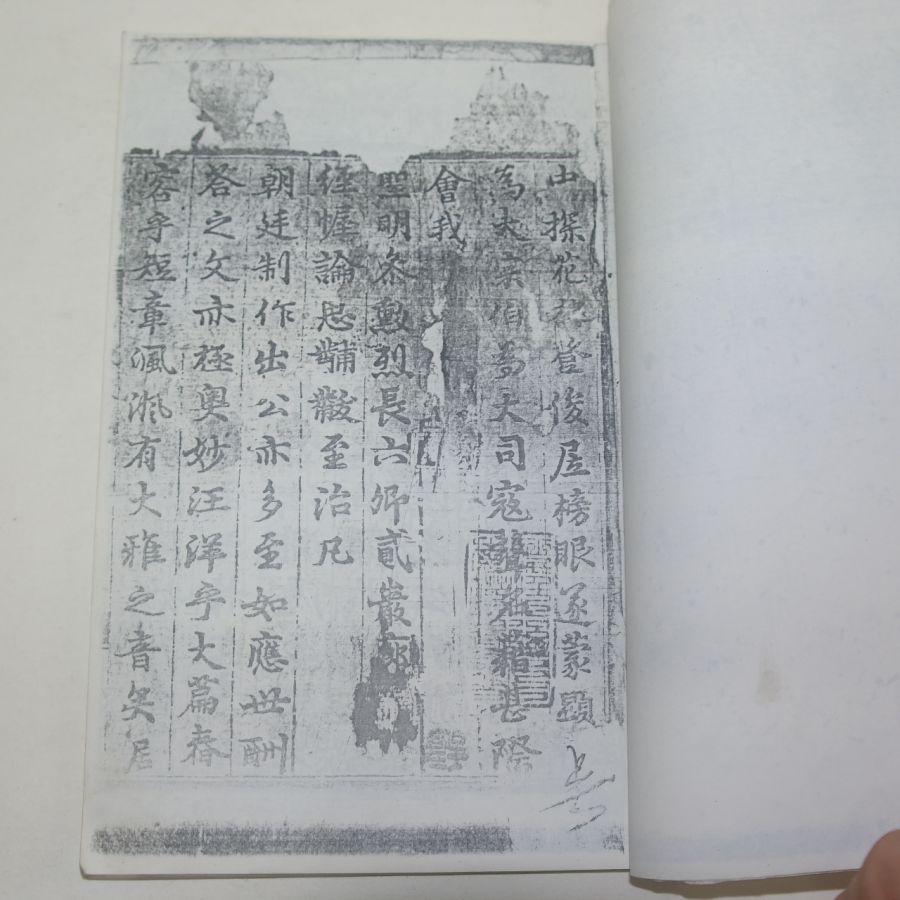 山探花 登俊居榜眼遂蒙顯
為大宗伯為大司寇 名藉甚際
會我
聖明 勲烈長六卿貳巖廊
經幄論思黼黻至治凡
朝廷制作出公亦多至如應世酬
答之文亦極奥妙汪洋乎大篇舂
容乎短章渢渢有大雅之音矣